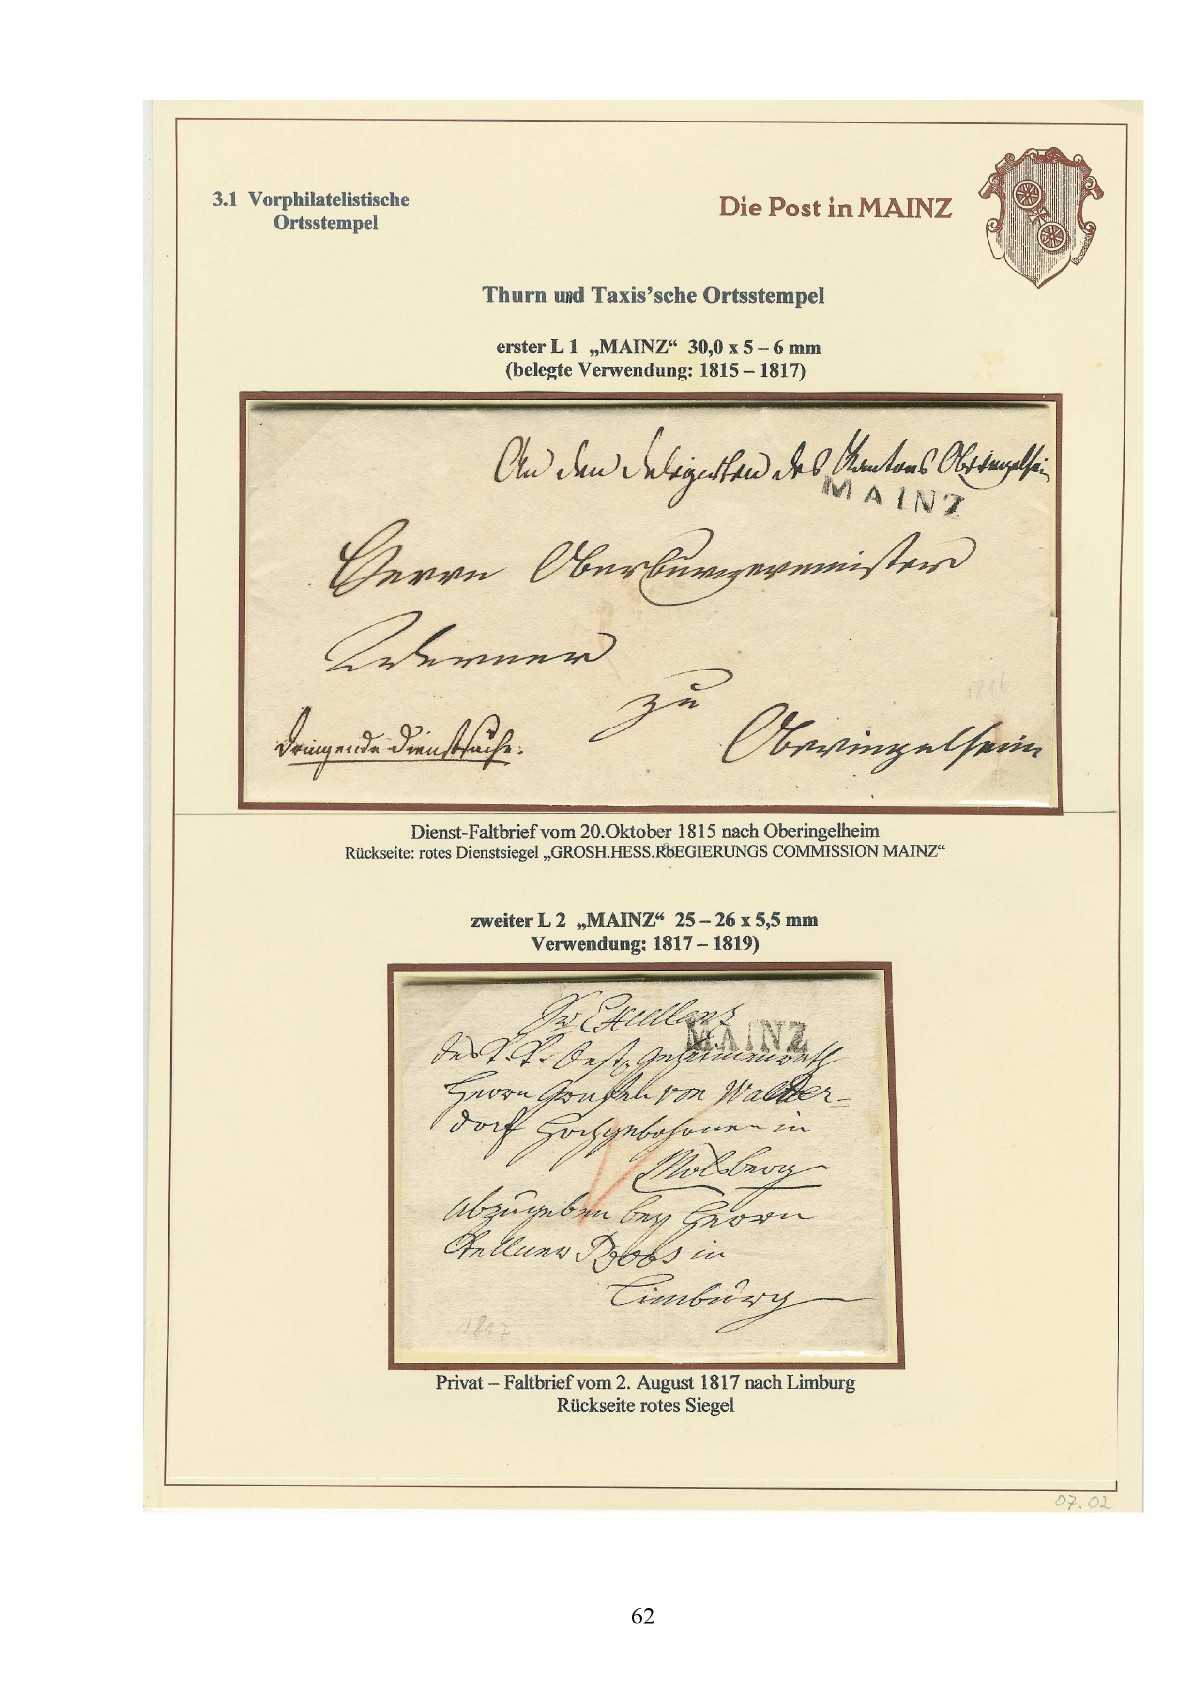 3.1 Vorphilatelistische
Ortsstempel
Die Post in MAINZ
Thurn und Taxis’sche Ortsstempel
erster L 1 „MAINZ“ 30,0 x 5 – 6 mm
(belegte Verwendung: 1815 – 1817)
An den Delegirten des Kantons Oberingelheim
MAINZ
Herrn Oberbürgermeister
Werner
zu
1816
dringende Dienstsache.
Oberingelheim
Dienst-Faltbrief vom 20.Oktober 1815 nach Oberingelheim
Rückseite: rotes Dienstsiegel „GROSH.HESS.RbEGIERUNGS COMMISSION MAINZ“
zweiter L 2 „MAINZ“ 25 – 26 x 5,5 mm
Verwendung: 1817 – 1819)
Sr Excellenz
MAINZ
des K. K. Oestr. Geheimenrath
Herrn Grafen von Walder-
dorf Hochgebohrnen in
Molsberg
abzugeben bey Herrn
Kellner Boos in
Limburg
1817
Privat – Faltbrief vom 2. August 1817 nach Limburg
Rückseite rotes Siegel
07.02
62